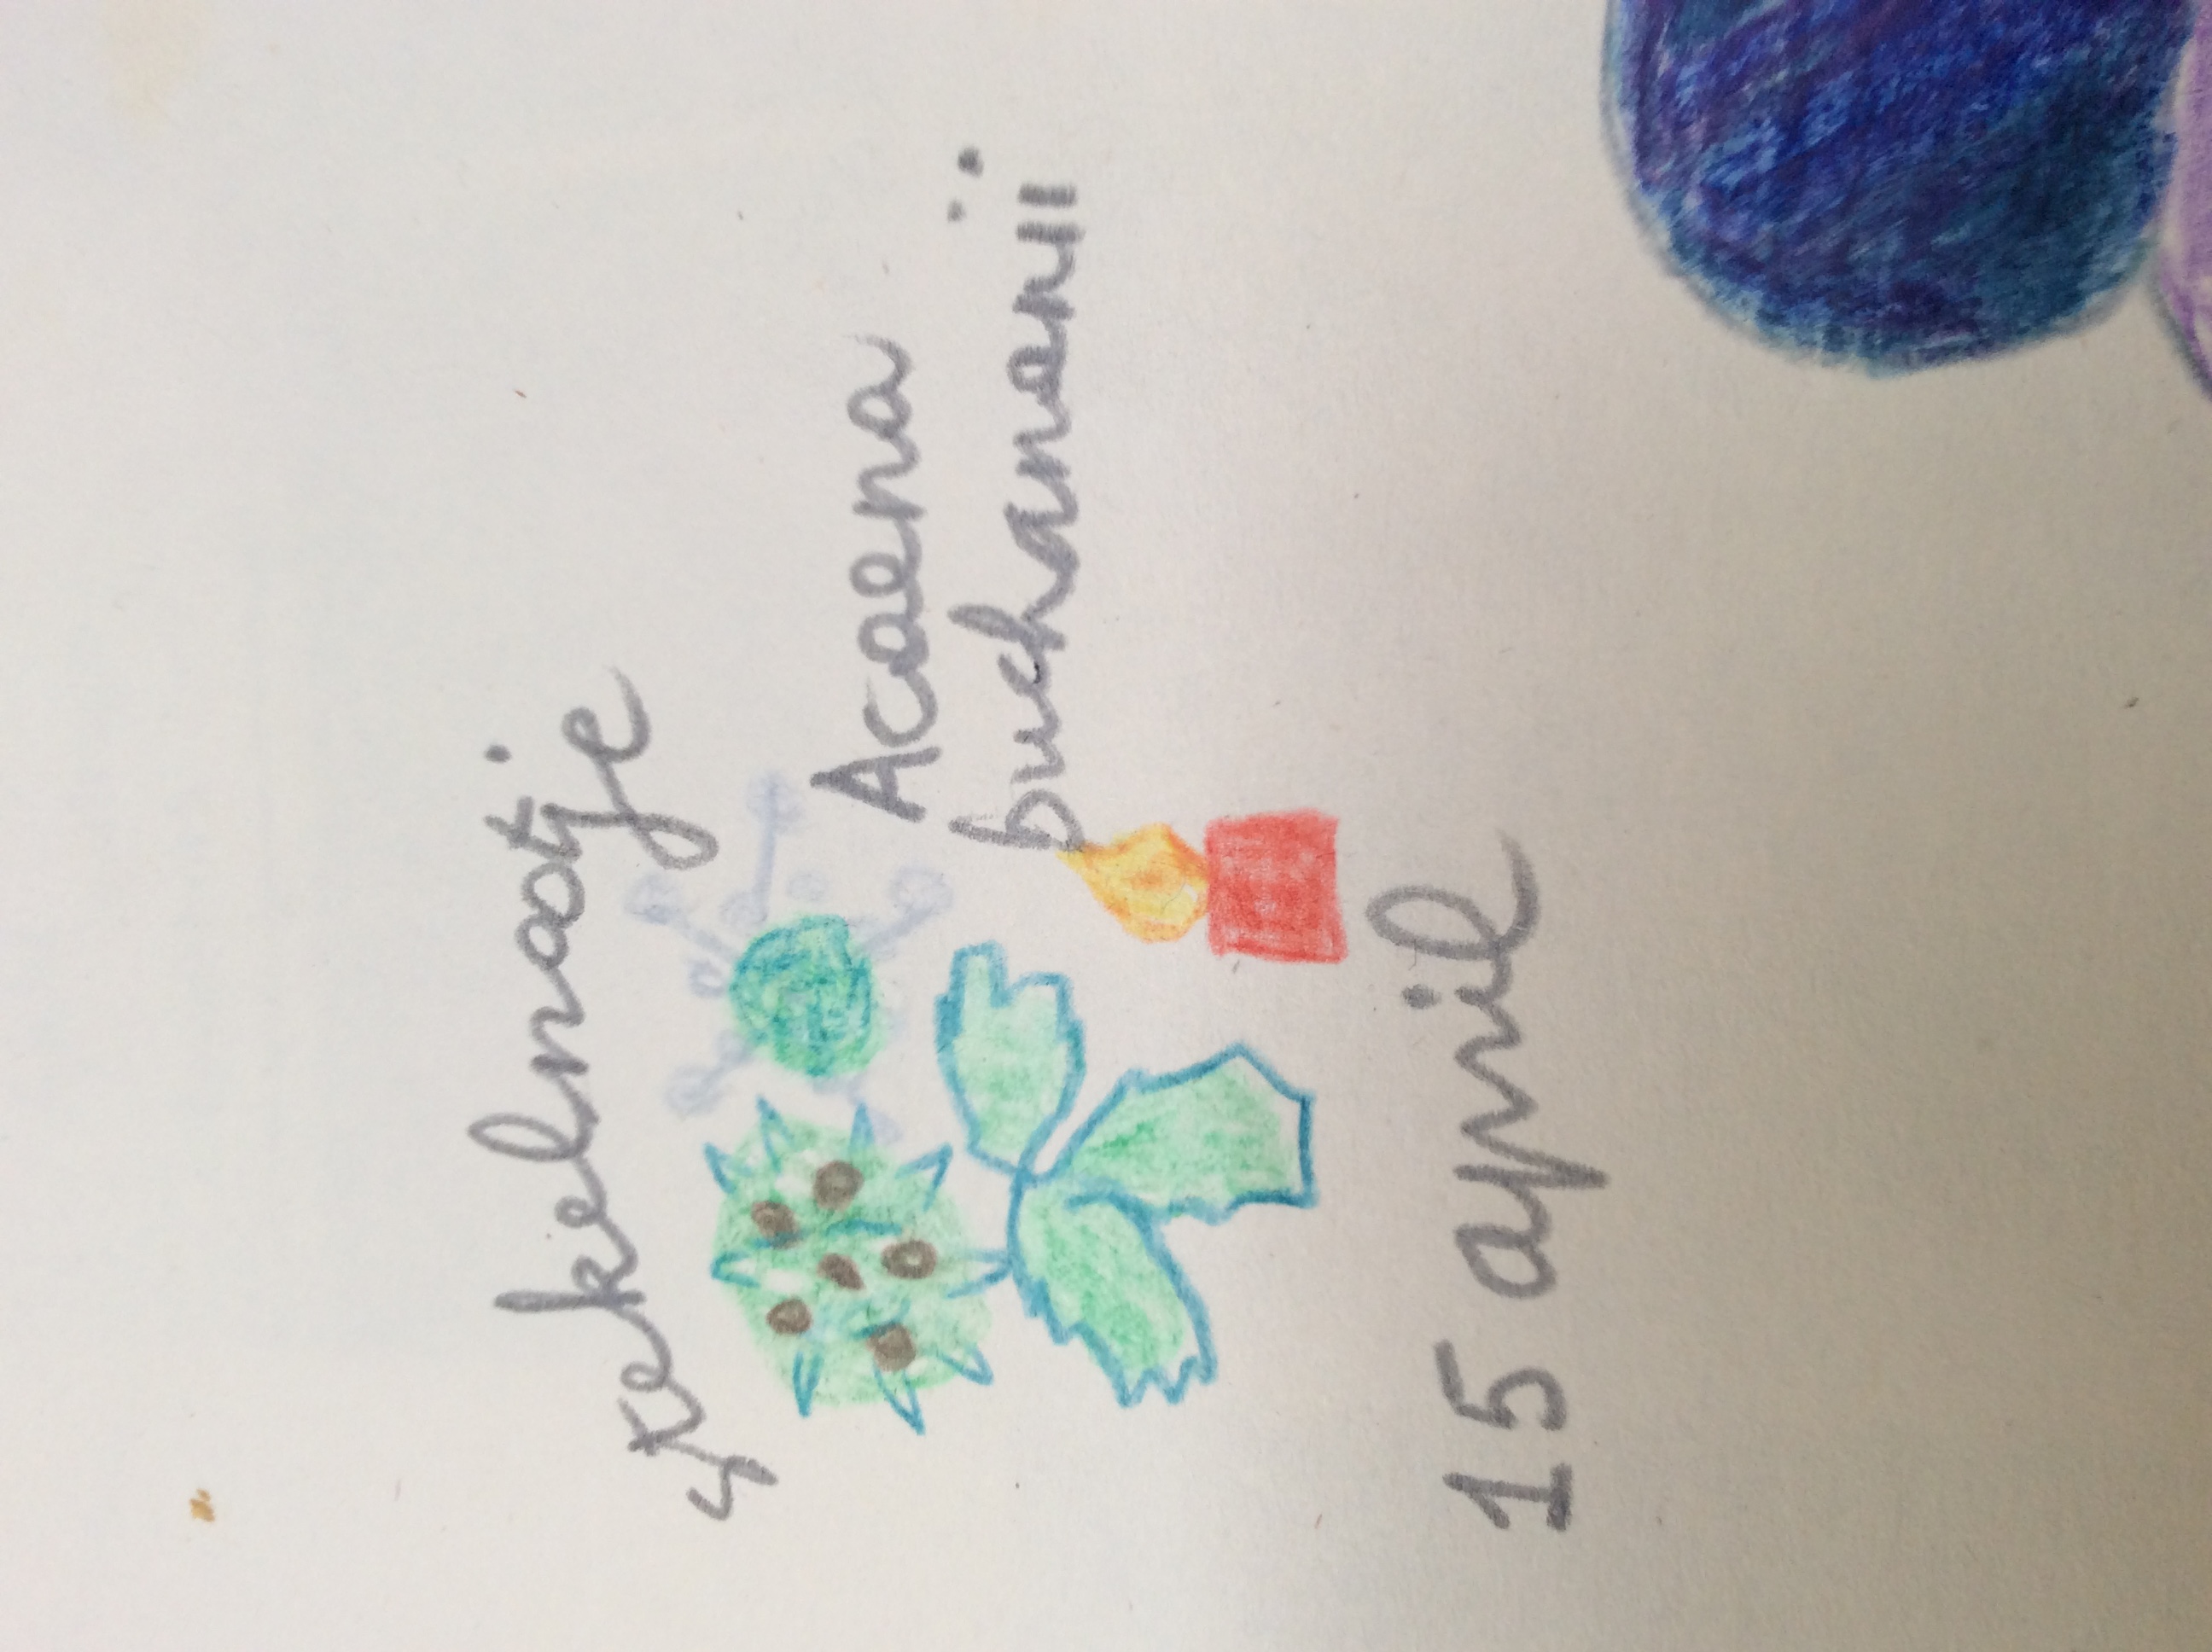 stekelnootje
Acaena
buchananii
15 april